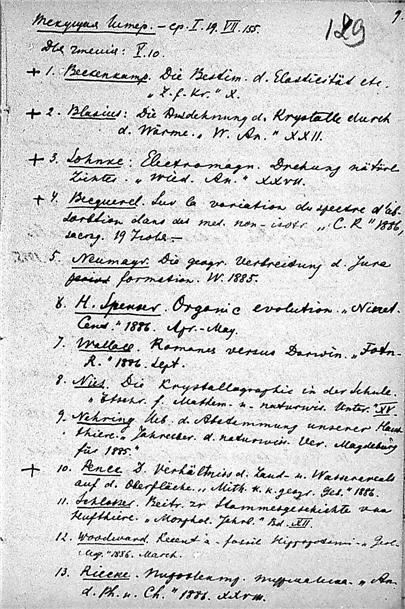 9.
129
Текущая литер. – ср. I. 19. VII. 155.
Для чтения: V. 10.
+ 1. Beckenkamp. Die Bestim. d. Elasticität etc.
„Z. f. Kr." X.
+ 2. Blasius: Die Ausdehnung d. Krystalle durch
d. Wärme. „W. An." XXII.
+ 3. Sohncke: Electromagn. Drehung natürl.
Lichtes. „Wied. An." XXVII.
+ 4. Becquerel. Sur la variation du spectre d'ab-
sorbtion dans des med. non-isotr. „C. R" 1886,
19
5. Neumayr. Die geogr. Verbreitung d. Jura
formation. W. 1885.
6. H. Spenser. Organic evolution. „Ninet.
Cent." 1886. Apr.-May.
7. Wallace. Romanes versus Darwin. „Fortn.
R." 1886. Sept.
8. Nies. Die Krystallographie in der Schule.
„Ztschr. f. Mathem. u. naturwis. Unter." XV.
9. Nehring. Ueb. d. Abstammung unserer Haus-
thiere. „Jahresber. d. naturwis. Ver. Magdeburg
für 1885"
+ 10. Penck. D. Verhältniss d. Land- u. Wasserareals
auf d. Oberfläche. „Mitth. k. k. geogr. Ges." 1886.
11. Schlosser. Beitr. zr Stammesgeschichte d.
Hufthiere. „Morphol. Jahrb." Bd. XII.
12. Woodward. Recent a. fossil „Geol.
Mag." 1886. March.
13. Riecke. „An.
d. Ph. u. Ch." 1886. XXVIII.